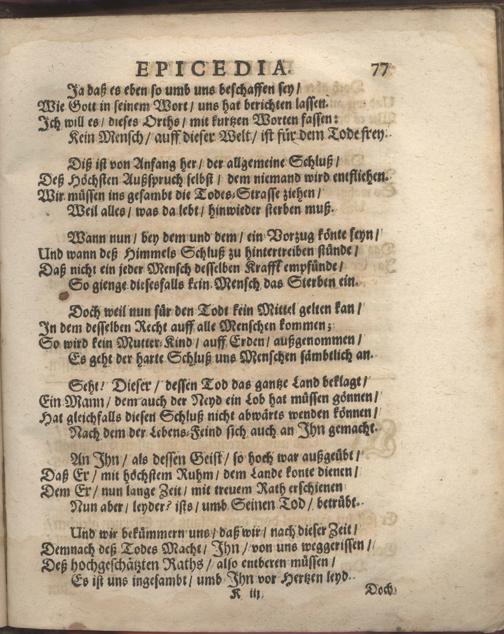 EPICEDIA. 77
Ja daß es eben so umb uns beschaffen sey/
Wie Gott in seinem Wort/ uns hat berichten lassen.
Ich will es/ dieses Orths/ mit kurtzen Worten fassen:
Kein Mensch/ auff dieser Welt/ ist für dem Tode frey.
Diß ist von Anfang her/ der allgemeine Schluß/
Deß Höchsten Außspruch selbst/ dem niemand wird entfliehen.
Wir müssen ins gesambt die Todes-Strasse ziehen/
Weil alles/ was da lebt/ hinwieder sterben muß.
Wann nun/ bey dem und dem/ ein Vorzug könte seyn/
Und wann deß Himmels Schluß zu hintertreiben stünde/
Daß nicht ein jeder Mensch desselben Krafft empfünde/
So gienge diesesfalls kein Mensch das Sterben ein.
Doch weil nun für den Todt kein Mittel gelten kan/
In dem desselben Recht auff alle Menschen kommen;
So wird kein Mutter-Kind/ auff Erden/ außgenommen/
Es geht der harte Schluß uns Menschen sämbtlich an.
Seht! Dieser/ dessen Tod das gantze Land beklagt/
Ein Mann/ dem auch der Neyd ein Lob hat müssen gönnen/
Hat gleichfalls diesen Schluß nicht abwärts wenden können/
Nach dem der Lebens-Feind sich auch an Ihn gemacht.
An Ihn/ als dessen Geist/ so hoch war außgeübt/
Daß Er/ mit höchstem Ruhm/ dem Lande konte dienen/
Dem Er/ nun lange Zeit/ mit treuem Rath erschienen
Nun aber/ leyder! ists/ umb Seinen Tod/ betrübt.
Und wir bekümmern uns/ daß wir/ nach dieser Zeit/
Demnach deß Todes Macht/ Ihn/ von uns weggerissen/
Deß hochgeschätzten Raths/ also entberen müssen/
Es ist uns ingesambt/ umb Ihn vor Hertzen leyd.
K iij Doch